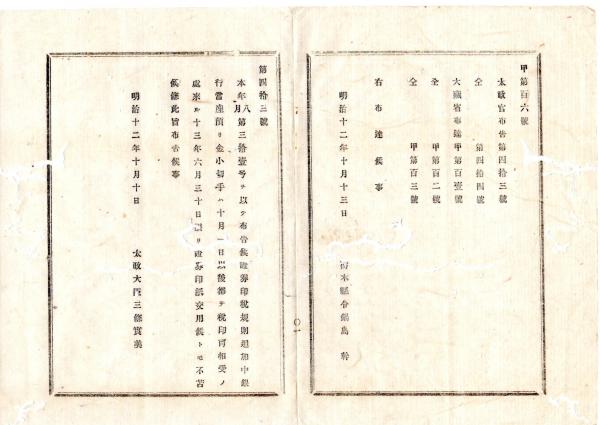 甲第百六號
太政官布告第四拾三號
仝 第四拾四號
大藏省布達甲第百壹號
仝 甲第百二號
仝 甲第百三號
右布達候事
明治十二年十月十三日
栃木縣令鍋島 幹
第四拾三號
本年八月第三拾壹号ヲ以テ布告候證券印税規則追加中銀
行當座預リ金小切手ハ十月一日以後總テ税印可相受ノ
處來ル十三年六月三十日限リ證券印紙交用候トモ不苦
候條此旨布告候事
明治十二年十月十日
太政大臣三條實美